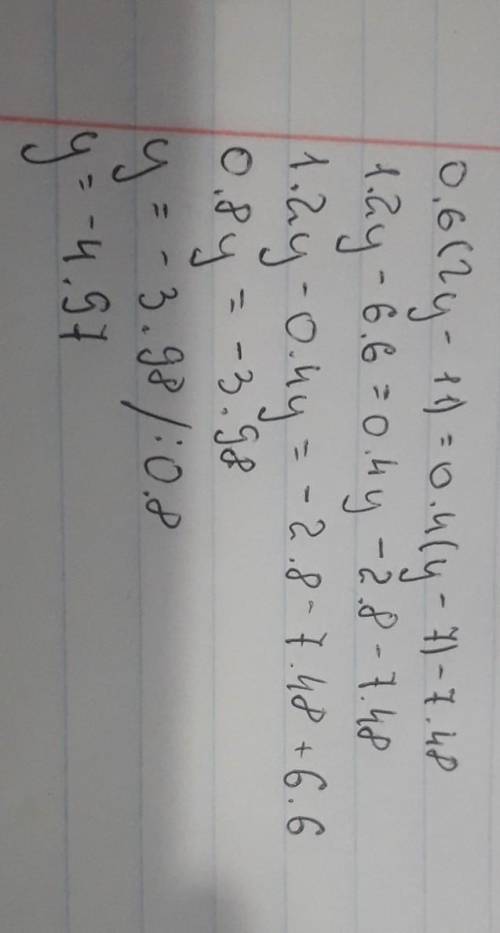 0.6(2y - 11) = 0.4(y - 7) - 7.48
1.2y - 6.6 = 0.4y - 2.8 - 7.48
1.2y - 0.4y = - 2.8 - 7.48 + 6.6
0.8y = - 3.98
y = - 3.98 / : 0.8
y = - 4.97